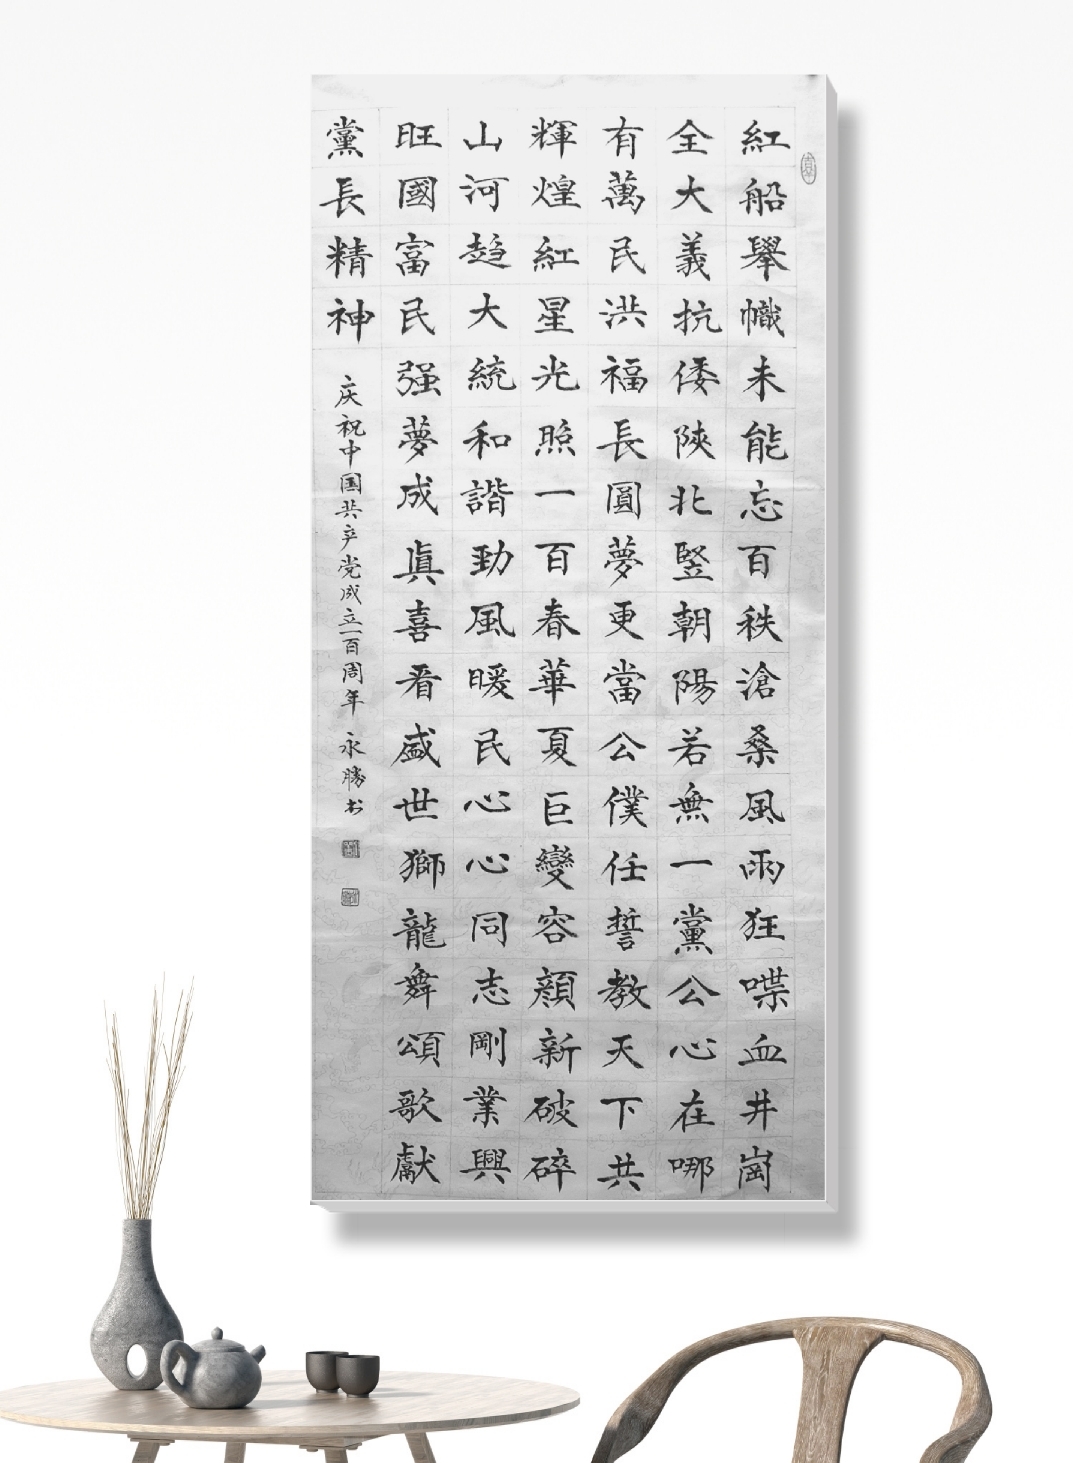 紅船舉幟未能忘百秩滄桑風雨狂喋血井崗
全大義抗倭陝北竪朝陽若無一黨公心在哪
有萬民洪福長圓夢更當公僕任誓教天下共
輝煌紅星光照一百春華夏巨變容顔新破碎
山河趋大統和諧勁風暖民心心同志剛業興
旺國富民强夢成真喜看盛世獅龍舞頌歌獻
黨長精神
庆祝中国共产党成立一百周年 永勝书